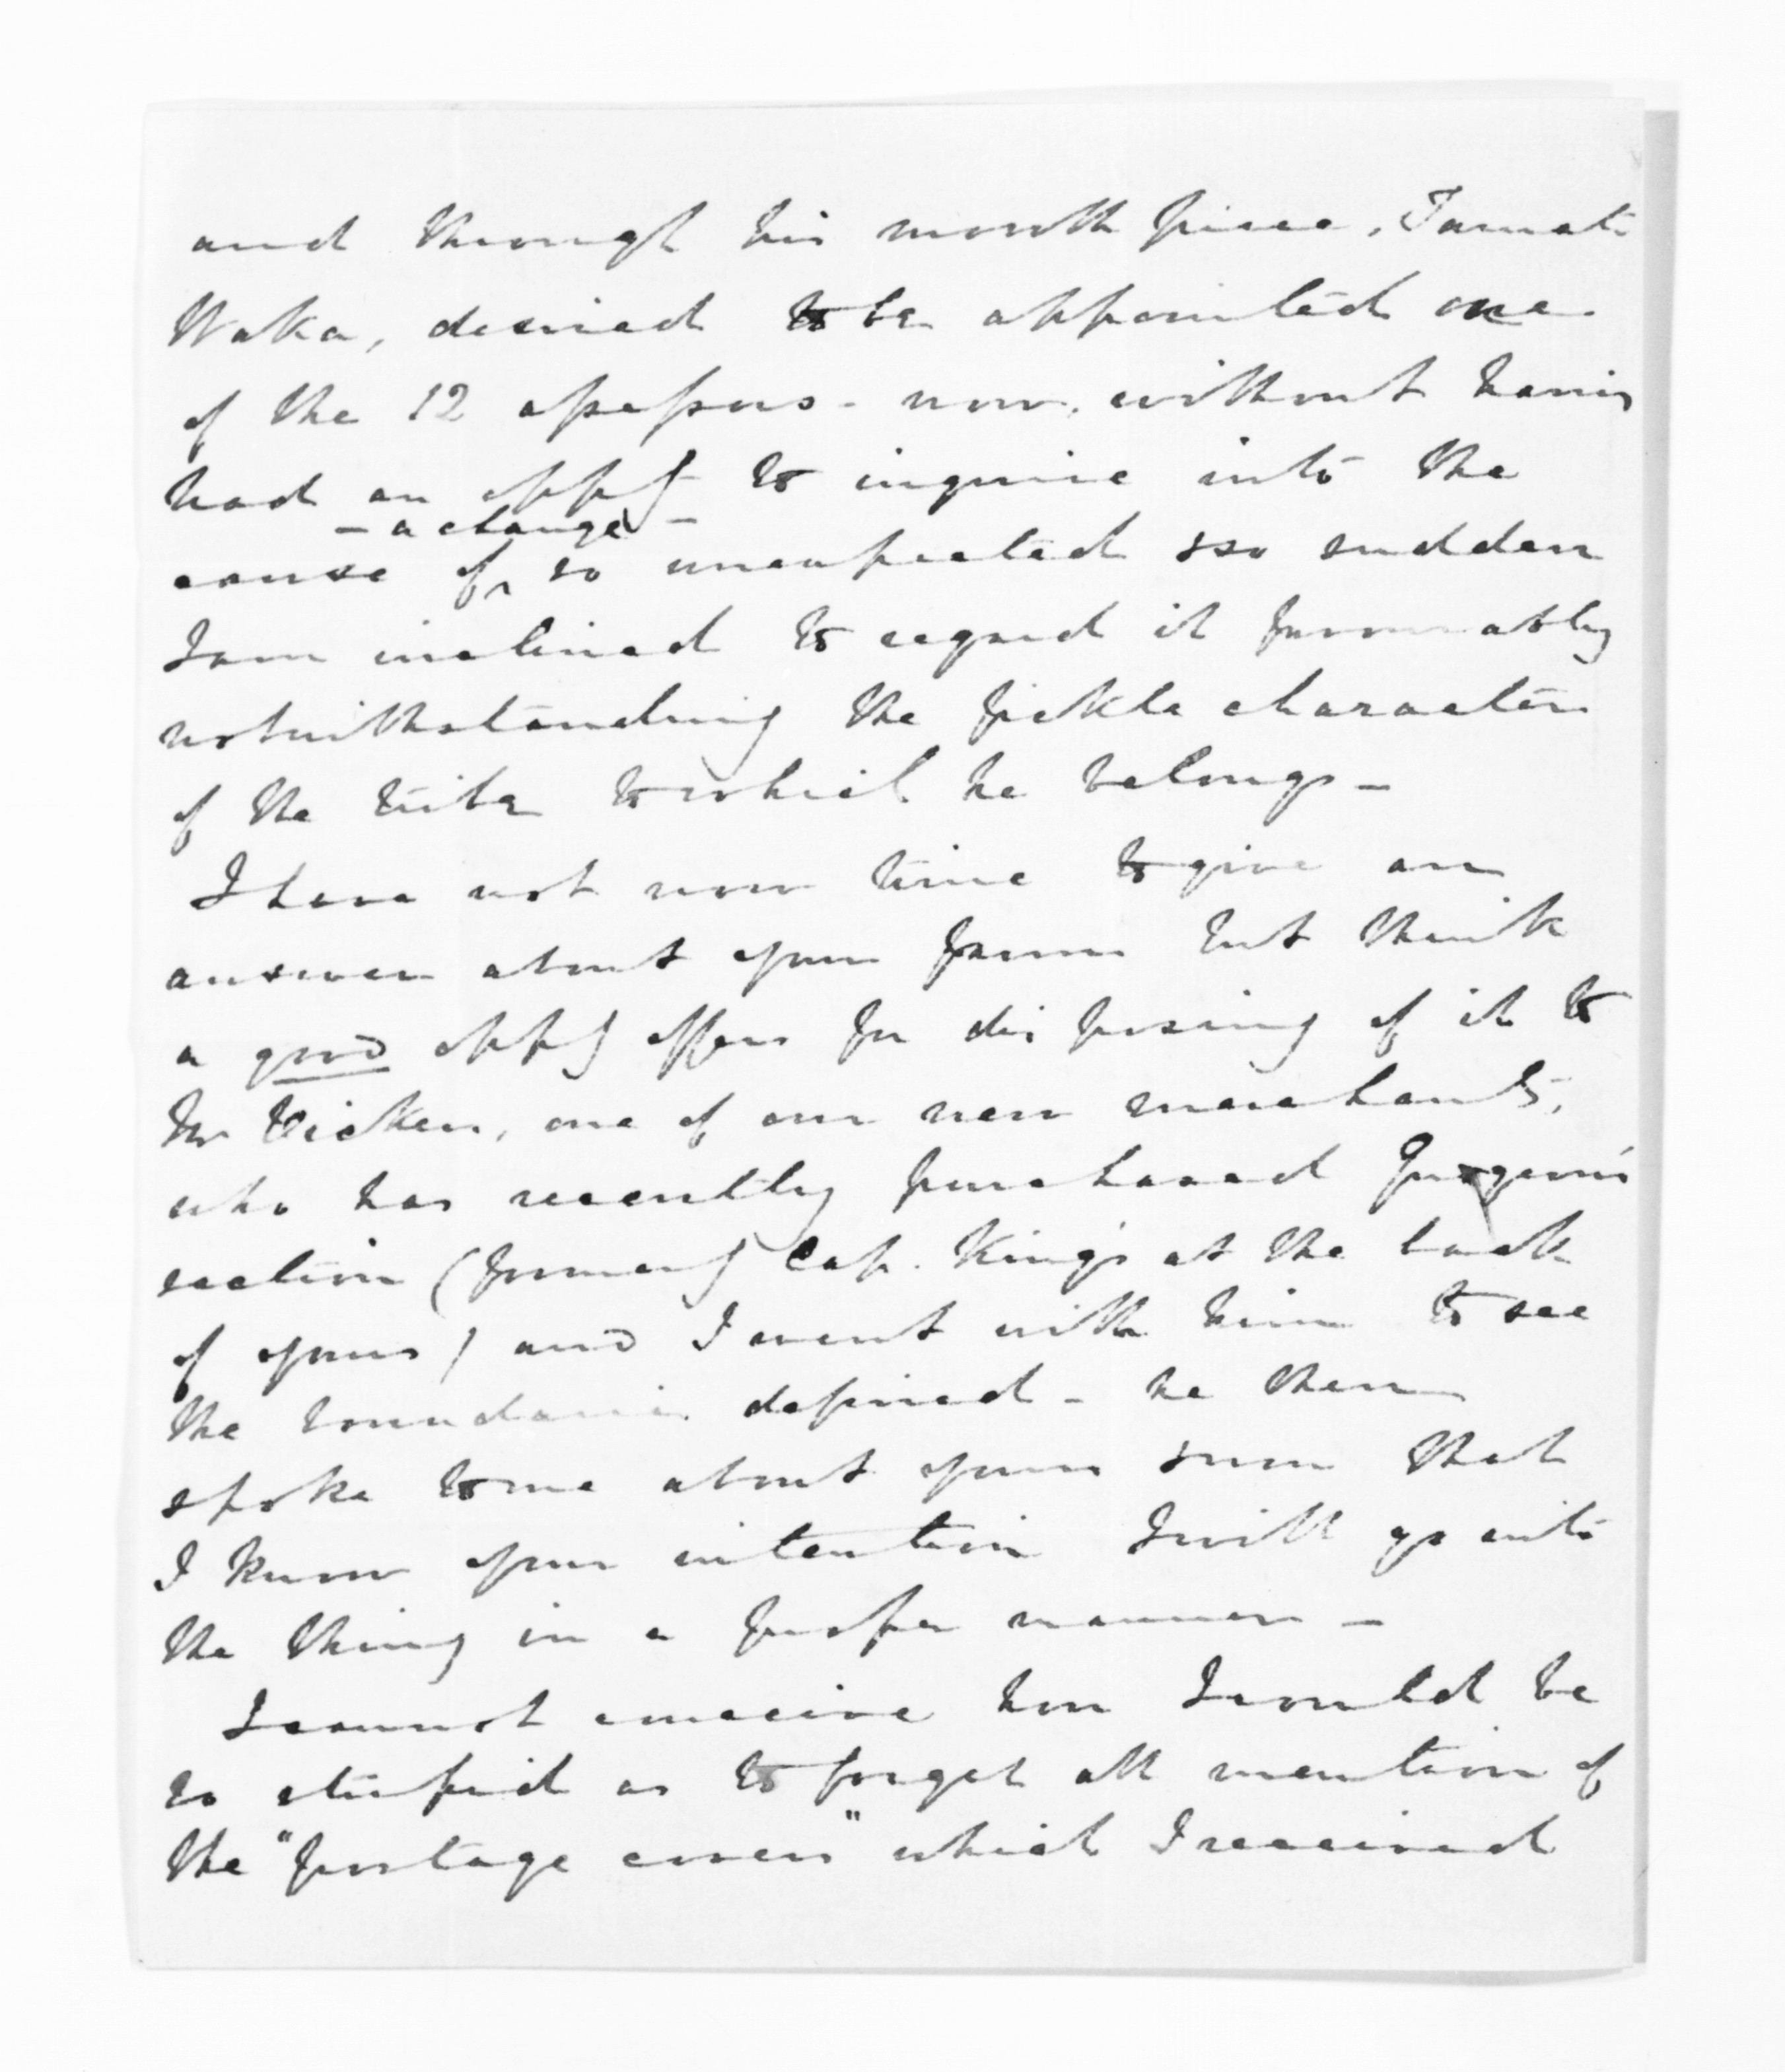 and through his mouth piece, Tamati
Waka, desired to be appointed one
of the 12 assessors - now, without having
had an oppy to inquire into the
- a change -
cause of so unexpected & so sudden
I am inclined to regard it favourably
notwithstanding the fickle character
of the tribe to which he belongs -
I have not now time to give an
answer about your farm but think
a good oppy offers for disposing of it to
Mr Vicken, one of our new merchants,
who has recently purchased
section (formerly Cap. King's at the back
of yours) and I went with him to see
the boundaries defined - he then
spoke to me about yours & now that
I know your intention I will go into
the thing in a proper manner -
I cannot conceive how I could be
so stupid as to forget all mention of
the "postage covers" which I received